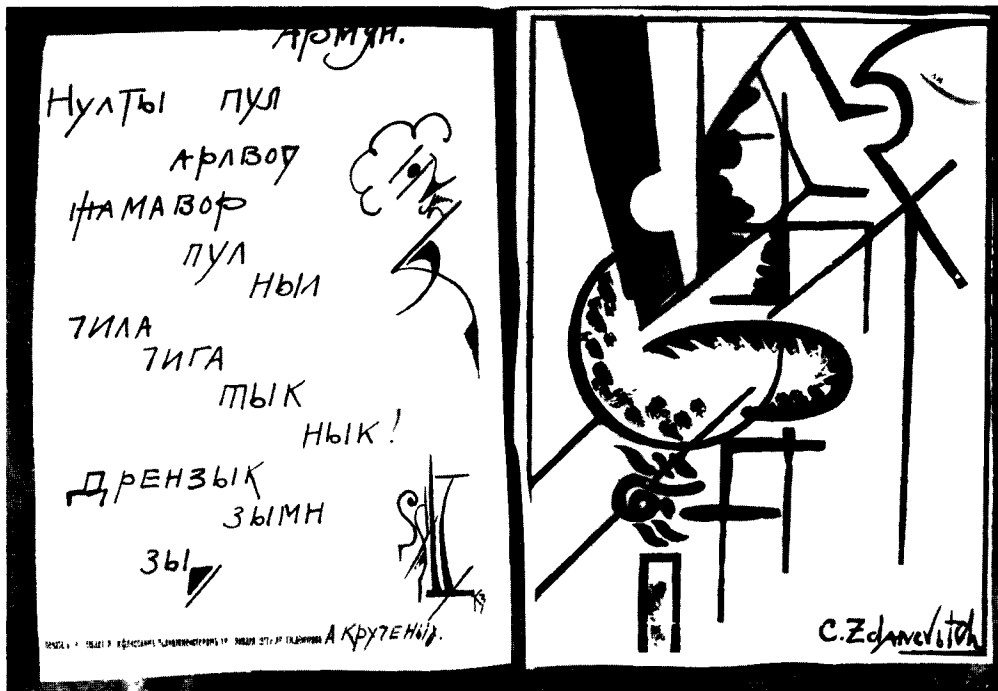 Армун.
Нулты пул
арлвоу
жамавор
пул
ныл
чила
чига
тык
нык!
Дрензык
зымн
зы
А Крученых.
C. Zdanevitch